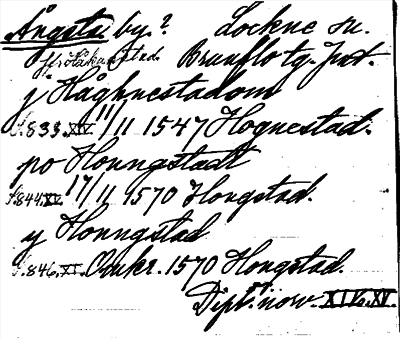 Ångsta by? Lockne sn.
Brunflo tg. Jmt.
j Håghnestadom
S.833.XIV. 11/11 1547 Hognestad.
po Honngstadt
S.844.XV. 17/11 1570 Hongstad.
y Honngstad
S.846.XV. Odat. 1570 Hongstad.
Dipl. norv. XIV. XV.